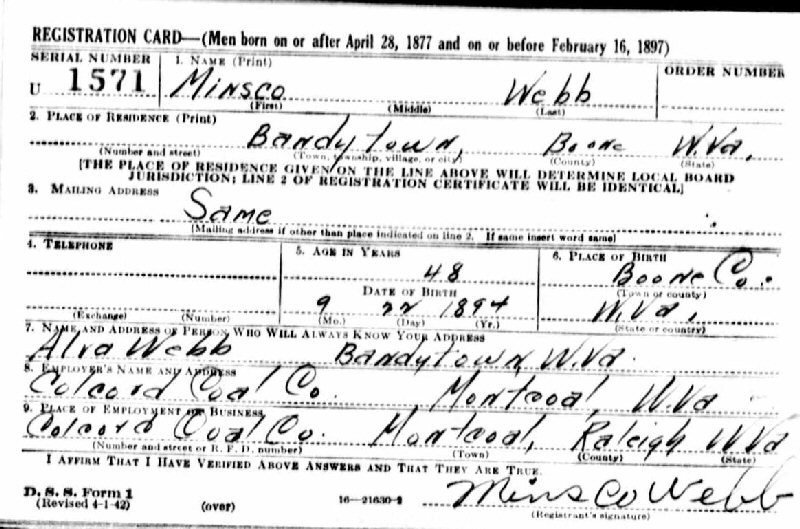 REGISTRATION CARD—(Men born on or after April 28, 1877 and on or before February 16, 1897)
SERIAL NUMBER 1. NAME (Print) ORDER NUMBER
U 1571 Minsco Webb
(First) (Middle) (Last)
2. PLACE OF RESIDENCE (Print)
Bandytown, Boone W.Va.
(Number and street) (Town, township, village, or city) (County) (State)
[THE PLACE OF RESIDENCE GIVEN ON THE LINE ABOVE WILL DETERMINE LOCAL BOARD
JURISDICTION; LINE 2 OF REGISTRATION CERTIFICATE WILL BE IDENTICAL]
3. MAILING ADDRESS
Same
[Mailing address if other than place indicated on line 2. If same insert word same]
4. TELEPHONE 5. AGE IN YEARS 6. PLACE OF BIRTH
48 Boone Co.
DATE OF BIRTH (Town or county)
9 22 1894 W.Va.
(Exchange) (Number) (Mo.) (Day) (Yr.) (State or country)
7. NAME AND ADDRESS OF PERSON WHO WILL ALWAYS KNOW YOUR ADDRESS
Alva Webb Bandytown W.Va.
8. EMPLOYER'S NAME AND ADDRESS
Colcord Coal Co. Montcoal, W.Va
9. PLACE OF EMPLOYMENT OR BUSINESS
Colcord Coal Co. Montcoal, Raleigh W.Va
(Number and street or R. F. D. number) (Town) (County) (State)
I AFFIRM THAT I HAVE VERIFIED ABOVE ANSWERS AND THAT THEY ARE TRUE.
D. S. S. Form 1
(Revised 4-1-42) (over) 16—21630-2 Minsco Webb
(Registrant's signature)